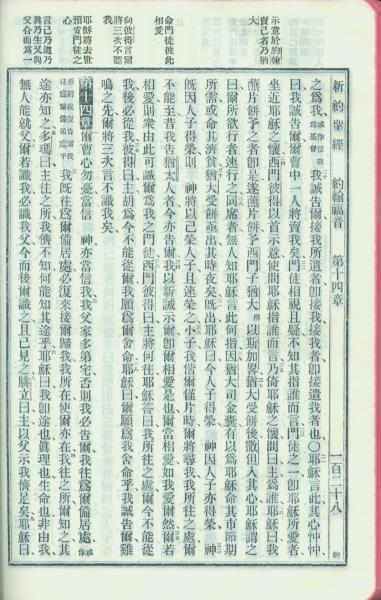 新約聖經　約翰福音　第十四章　一百二十八
之爲我誠告爾接我所遣者卽接我接我者卽接遣我者也〇耶穌言此其心忡忡
曰我誠告爾爾曹中一人將賣我矣門徒相視且疑不知其指誰而言門徒之一卽耶穌所愛者
坐近耶穌之懷西門彼得以首示意使問耶穌指誰而言乃倚耶穌之懷問曰主爲誰耶穌曰我
蘸片餅予之者卽是遂蘸片餅予西門子猶大以斯加畧猶大受餅後撒但入其心耶穌謂之
曰爾所欲行者速行之同席者無人知耶穌言此何指因猶大司金囊有以爲耶穌命其市節期
所需或命其濟貧猶大受餅亟出其時夜矣旣出耶穌曰今人子得榮神因人子亦得榮神
旣因人子得榮則神將以己榮人子且速榮之小子我偕爾僅片時爾將尋我我所往之處爾
不能至昔我告猶太人者今亦告爾我以新誡示爾卽相愛是也爾當相愛如我愛爾然爾若
相愛則衆由此可識爾爲我之門徒西門彼得曰主將何往耶穌答曰我所往之處爾今不能從
我後必從我彼得曰主胡爲今不能從爾我願爲爾舍命耶穌曰爾願爲我舍命乎我誠告爾雞
鳴之先爾將三次言不識我矣
第十四章爾曹心勿憂當信神亦當信我我父家多第宅否則我必吿爾我往爲爾備居處
我旣往爲爾備居處必復來接爾歸我我所在使爾亦在我往之所爾知之其
途亦知之多瑪曰主往之所我儕不知何能知其途乎耶穌曰我卽途也眞理也生命也非由我
無人能就父爾若識我必識我父今而後爾識之且已見之腓立曰主以父示我儕足矣耶穌曰
示意於約翰
賣己者乃猶
大
命門徒彼此
相愛
向彼得言爾
將三次不認
我
耶穌將去世
預安門徒之
心
言己乃道乃
眞乃生又與
父合而爲一